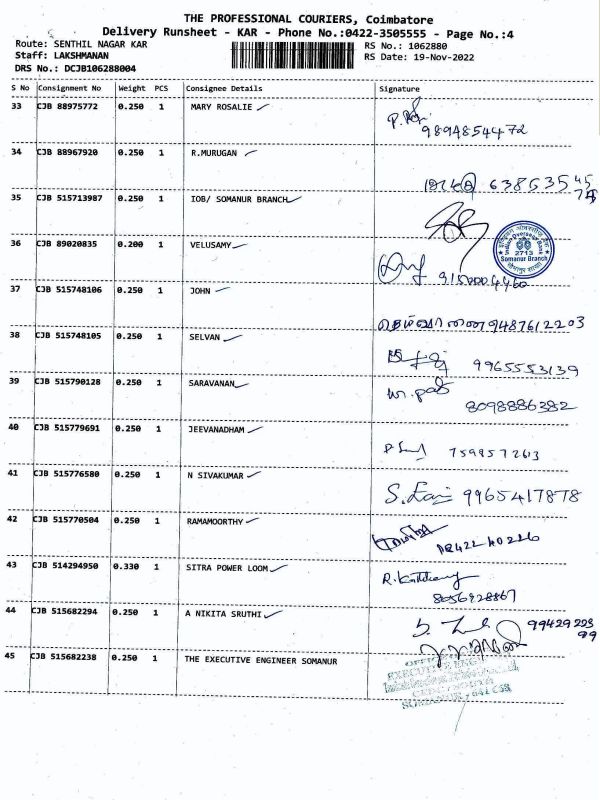 THE PROFESSIONAL COURIERS, Coimbatore
Delivery Runsheet - KAR - Phone No.:0422-3505555 - Page No.:4
Route: SENTHIL NAGAR KAR RS No.: 1062880
Staff: LAKSHMANAN RS Date: 19-Nov-2022
DRS No.: DCJB106288004
S No Consignment No Weight PCS Consignee Details Signature
33 CJB 88975772 0.250 1 MARY ROSALIE
9894854472
34 CJB 88967920 0.250 1 R.MURUGAN
638535 45
35 CJB 515713987 0.250 1 IOB/ SOMANUR BRANCH
Indian Overseas Bank
2713
Somanur Branch
36 CJB 89020835 0.200 1 VELUSAMY
9150004460
37 CJB 515748106 0.250 1 JOHN
9487612203
38 CJB 515748105 0.250 1 SELVAN
9965553139
39 CJB 515790128 0.250 1 SARAVANAN
8098886382
40 CJB 515779691 0.250 1 JEEVANADHAM
7598572613
41 CJB 515776580 0.250 1 N SIVAKUMAR
9965417878
42 CJB 515770504 0.250 1 RAMAMOORTHY
43 CJB 514294950 0.330 1 SITRA POWER LOOM
8056928867
44 CJB 515682294 0.250 1 A NIKITA SRUTHI
99429 223
99
45 CJB 515682238 0.250 1 THE EXECUTIVE ENGINEER SOMANUR